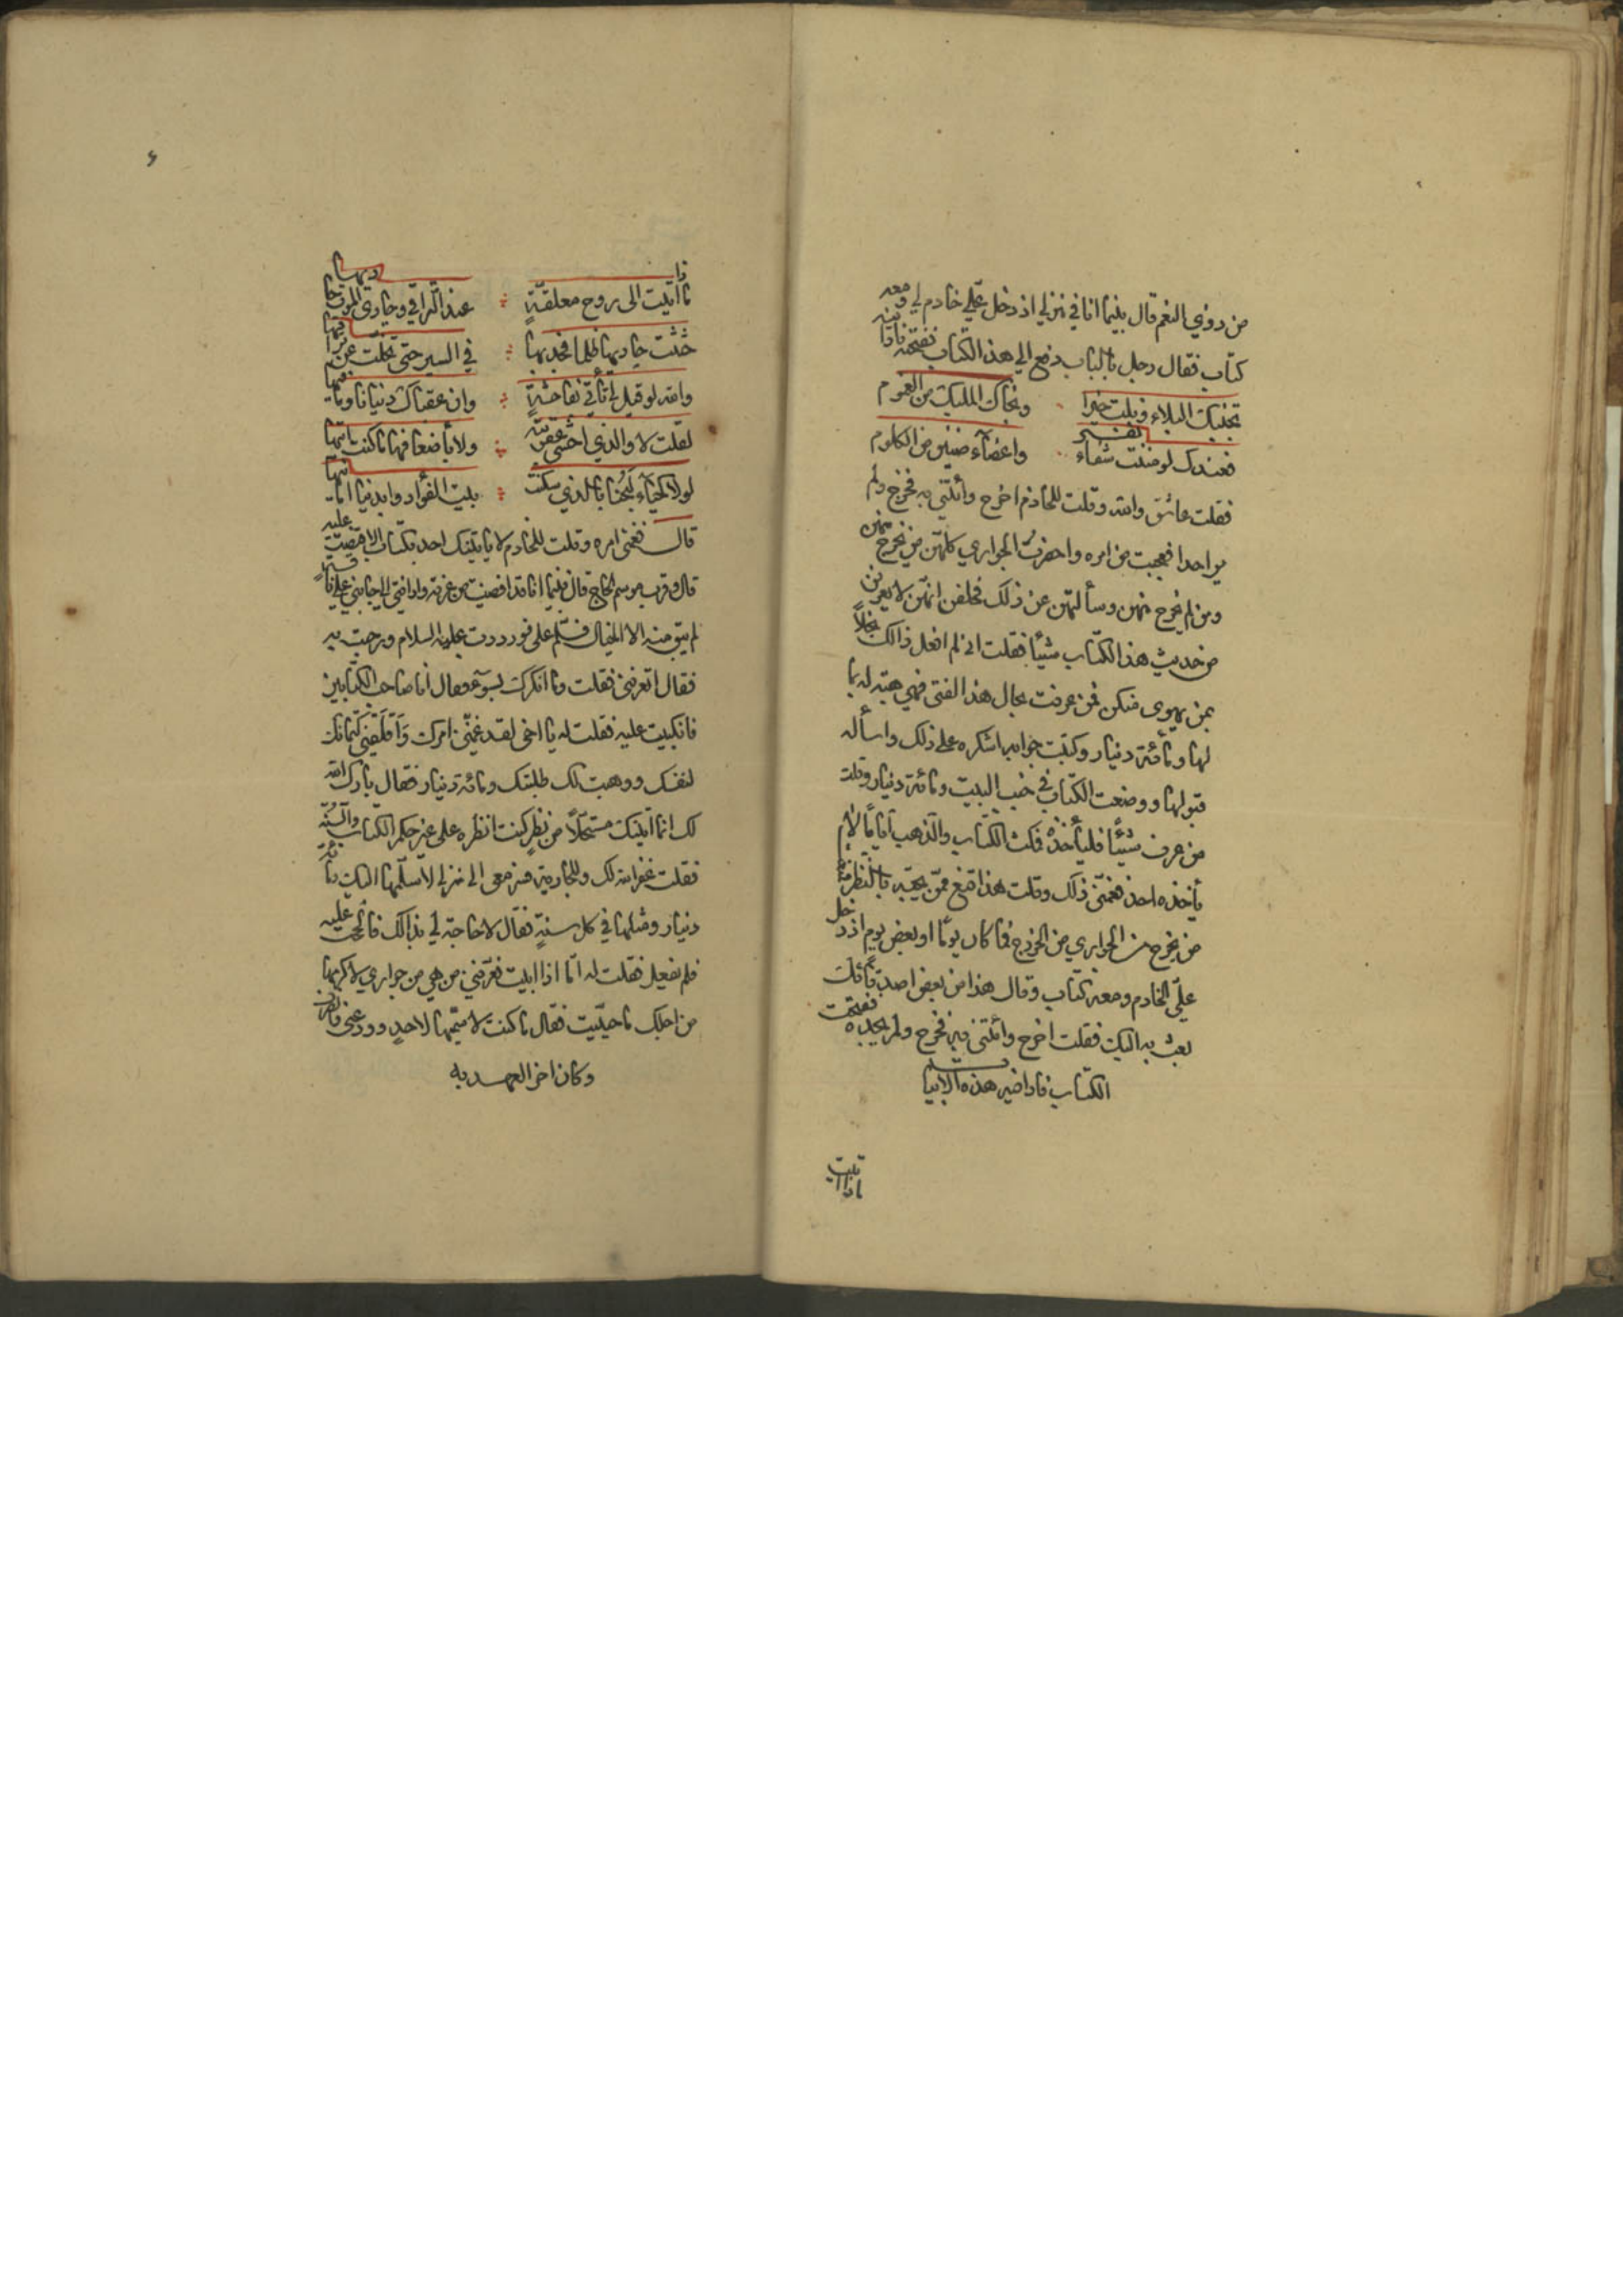 من ذوي النعم قال بينما انا في منزلي اذ دخل علي خادم لي ومعه
كتاب فقال رجل بالباب دفع الي هذا الكتاب ففتحته فاذا فيه
تجنبك البلاء ونلت خيرا ونجاك المليك من الغموم
فعندك لو مننت شفاء نفسي واعضاء ضنين من الكلوم
فقلت عاشق والله وقلت للخادم اخرج وأتني به فخرج ولم
ير احدا فعجبت من امره واحضرت الجواري كلهن من يخرج منهن
ومن لم يخرج منهن وسألتهن عن ذلك فحلفن انهن لا يعرفن
من حديث هذا الكتاب شيئا فقلت اني لم افعل ذالك بخلا
بمن يهوى منكن فمن عرفت بحال هذا الفتى فهي هبة له بما
لها ومائة دينار وكتبت جوابه اشكره على ذلك واسأله
قبولها ووضعت الكتاب في جنب البيت ومائة دينار وقلت
من عرف شيئا فليأخذه فمكث الكتاب والذهب اياما لا
يأخذه احد فغمني ذلك وقلت هذا قنع ممن يحبه بالنظر فمنعت
من يخرج من الجواري من الخروج فما كان يوما او بعض يوم اذ دخل
علي الخادم ومعه كتاب وقال هذا من بعض اصدقائك
بعث به اليك فقلت اخرج وائتني به فخرج ولم يجده ففتحت
الكتاب فاذا فيه هذه الابيات
ماذا اتيت
ماذا اتيت الى روح معلقة عند التراقي وحادي الموت حاديها
حثثت حاديها ظلما فجد بها في السير حتى تخلت عن تراقيها
والله لو قيل لي تأتي بفاحشة وان عقباك دنيانا وما فيها
لقلت لا والذي اخشى عقوبته ولا بأضعافها ما كنت آتيها
لولا الحياء لبحنا بالذي سكنت بيت الفؤاد وابدينا امانيها
قال فغمني امره وقلت للخادم لا يأتينك احد بكتاب الا قبضت عليه
قال وقرب موسم الحاج قال فبينما انا قد افضت من عرفة واذا فتى الى جانبي على ناقة
لم يبق منه الا الخيال فسلم علي فرددت عليه السلام ورحبت به
فقال اتعرفني فقلت وما انكرك بسوء فقال أنا صاحب الكتابين
فانكببت عليه فقلت له يا اخي لقد غمني امرك واقلقني كتمانك
لنفسك ووهبت لك طلبتك ومائة دينار فقال بارك الله
لك انما اتيتك مستحلا من نظر كنت انظره على غير حكم الكتاب والسنة
فقلت غفر الله لك وللجارية فسر معي الى منزلي لاسلمها اليك ومائة
دينار ومثلها في كل سنة فقال لا حاجة لي بذالك فالححت عليه
فلم يفعل فقلت له اما اذا ابيت فعرفني من هي من جواري لاكرمها
من اجلك ما حييت فقال ما كنت لاسميها لاحد وودعني وانصرف
وكان اخر العهد به